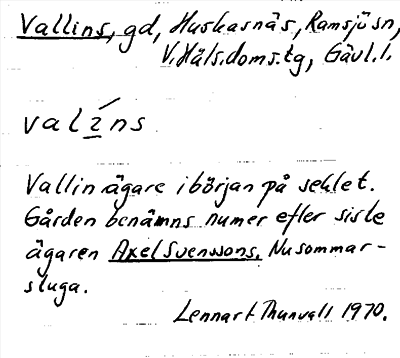 Vallins, gd, Huskasnäs, Ramsjö sn,
V. Häls. doms. tg, Gävl. l.
valíns
Vallin ägare i början på seklet.
Gården benämns numer efter siste
ägaren Axel Svenssons. Nu sommar-
stuga.
Lennart Thunvall 1970.